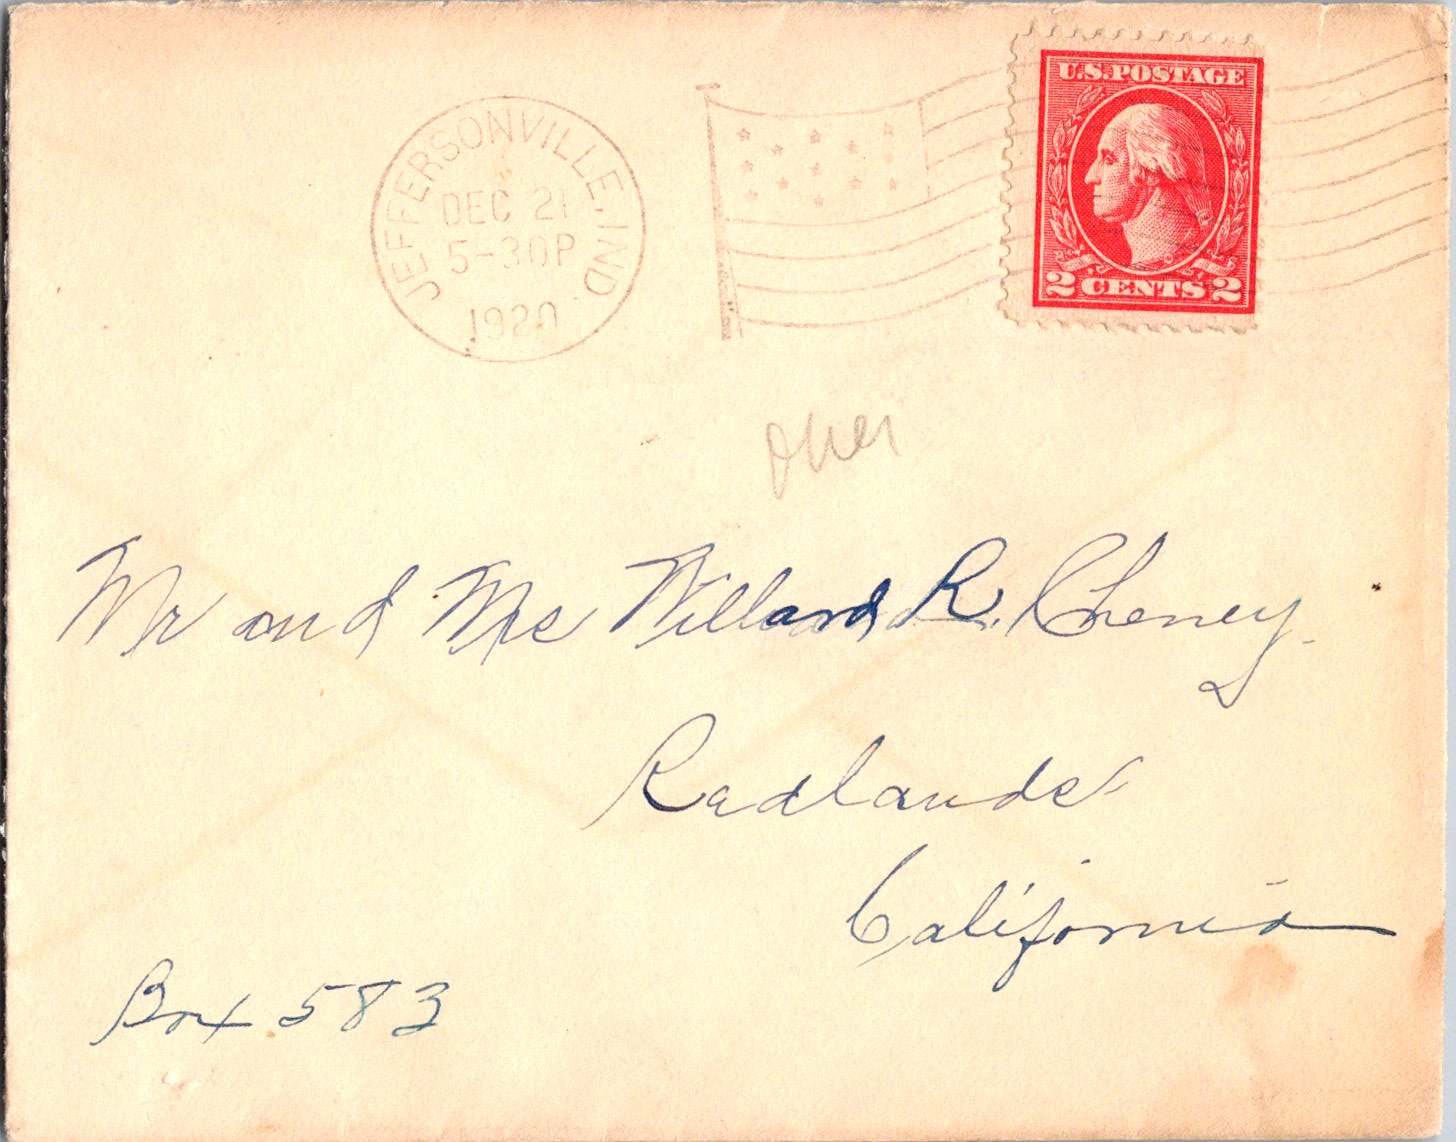 JEFFERSONVILLE, IND.
DEC 21
5-30P
1920
U.S. POSTAGE
2 CENTS 2
Mr and Mrs Willard R. Cheney
Redlands
California
Box 583